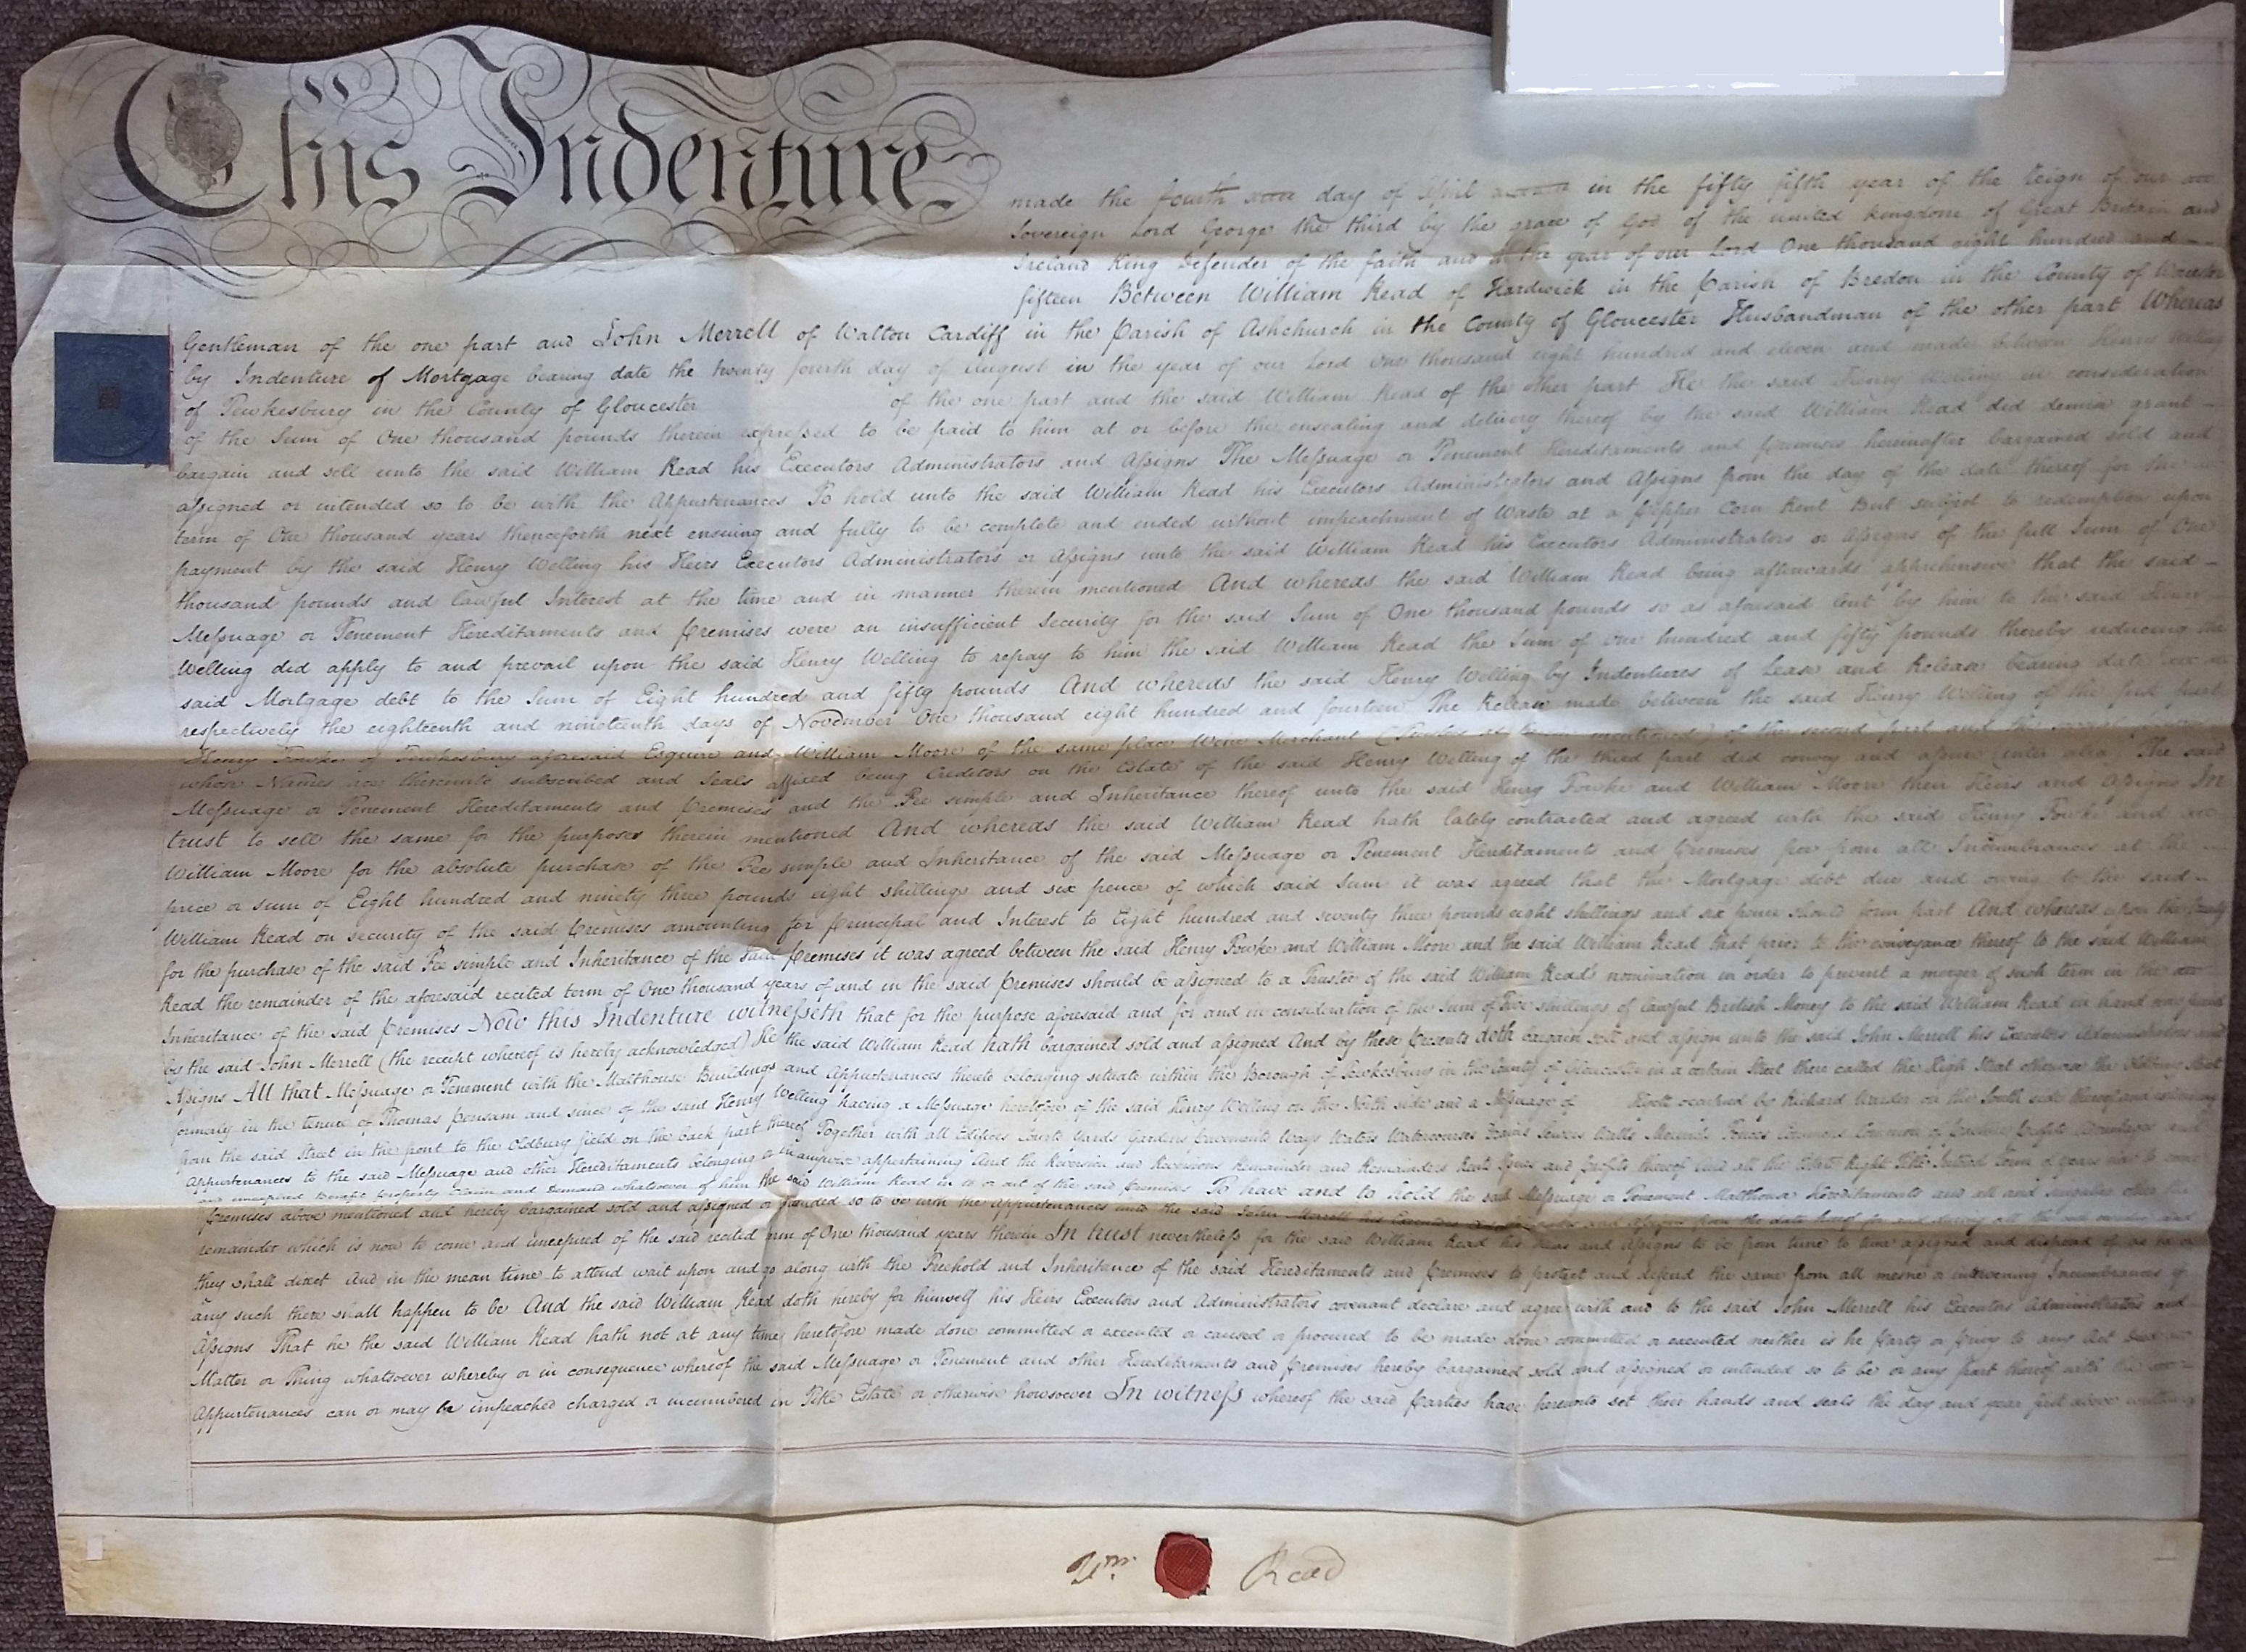 This Indenture
made the fourth day of April in the fifty fifth year of the Reign of our
Sovereign Lord George the third by the grace of God of the united kingdom of Great Britain and
Ireland King Defender of the faith and in the year of our Lord One thousand eight hundred and
fifteen Between William Read of Hardwick in the Parish of Bredon in the County of Worcester
Gentleman of the one part and John Merrell of Walton Cardiff in the Parish of Ashchurch in the County of Gloucester Husbandman of the other part Whereas
by Indenture of Mortgage bearing date the twenty fourth day of August in the year of our Lord One thousand eight hundred and eleven and made between Henry Welling
of Tewkesbury in the County of Gloucester of the one part and the said William Read of the other part He the said Henry Welling in consideration
of the Sum of One thousand pounds therein expressed to be paid to him at or before the ensealing and delivery thereof by the said William Read did demise grant
bargain and sell unto the said William Read his Executors Administrators and Assigns The Messuage or Tenement Hereditaments and premises hereinafter bargained sold and
assigned or intended so to be with the Appurtenances To hold unto the said William Read his Executors Administrators and Assigns from the day of the date thereof for the
term of One thousand years thenceforth next ensuing and fully to be complete and ended without impeachment of Waste at a Pepper Corn Rent But subject to redemption upon
payment by the said Henry Welling his Heirs Executors Administrators or Assigns unto the said William Read his Executors Administrators or Assigns of the full Sum of One
thousand pounds and lawful Interest at the time and in manner therein mentioned And whereas the said William Read being afterwards apprehensive that the said
Messuage or Tenement Hereditaments and premises were an insufficient Security for the said Sum of One thousand pounds so as aforesaid lent by him to the said Henry
Welling did apply to and prevail upon the said Henry Welling to repay to him the said William Read the Sum of One hundred and fifty pounds thereby reducing the
said Mortgage debt to the Sum of Eight hundred and fifty pounds And whereas the said Henry Welling by Indentures of Lease and Release bearing date
respectively the eighteenth and nineteenth days of November One thousand eight hundred and fourteen The Release made between the said Henry Welling of the first part
Henry Fowke of Tewkesbury aforesaid Esquire and William Moore of the same place Wine Merchant (Trustees as therein mentioned) of the second part and the several persons
whose Names are thereunto subscribed and Seals affixed being Creditors on the Estate of the said Henry Welling of the third part did convey and assure (inter alia) The said
Messuage or Tenement Hereditaments and Premises and the Fee simple and Inheritance thereof unto the said Henry Fowke and William Moore their Heirs and Assigns In
trust to sell the same for the purposes therein mentioned And whereas the said William Read hath lately contracted and agreed with the said Henry Fowke and
William Moore for the absolute purchase of the Fee simple and Inheritance of the said Messuage or Tenement Hereditaments and premises free from all Incumbrances at the
price or sum of Eight hundred and ninety three pounds eight shillings and six pence of which said Sum it was agreed that the Mortgage debt due and owing to the said
William Read on security of the said premises amounting for principal and Interest to Eight hundred and seventy three pounds eight shillings and six pence should form part And whereas upon the treaty
for the purchase of the said Fee simple and Inheritance of the said premises it was agreed between the said Henry Fowke and William Moore and the said William Read that prior to the conveyance thereof to the said William
Read the remainder of the aforesaid recited term of One thousand years of and in the said premises should be assigned to a Trustee of the said William Read's nomination in order to prevent a merger of such term in the
Inheritance of the said premises Now this Indenture witnesseth that for the purpose aforesaid and for and in consideration of the Sum of five shillings of lawful British Money to the said William Read in hand now paid
by the said John Merrell (the receipt whereof is hereby acknowledged) He the said William Read hath bargained sold and assigned And by these presents doth bargain sell and assign unto the said John Merrell his Executors Administrators and
Assigns All that Messuage or Tenement with the Malthouse Buildings and Appurtenances thereto belonging situate within the Borough of Tewkesbury in the County of Gloucester in a certain Street there called the High Street otherwise the Oldbury Street
formerly in the tenure of Thomas Pensam and since of the said Henry Welling having a Messuage heretofore of the said Henry Welling on the North side and a Messuage of occupied by Richard Warder on the South side thereof and extending
from the said Street in the front to the Oldbury field on the back part thereof Together with all Edifices Courts Yards Gardens Easements Ways Waters Watercourses Drains Sewers Walls Mounds Fences Commons Common of Pasture profits Advantages and
Appurtenances to the said Messuage and other Hereditaments belonging or in anywise appertaining And the Reversion and Reversions Remainder and Remainders Rents Issues and profits thereof And all the Estate Right Title Interest Term of years now to come
and unexpired Benefit property Claim and Demand whatsoever of him the said William Read in to or out of the said premises To have and to hold the said Messuage or Tenement Malthouse Hereditaments and all and singular other the
premises above mentioned and hereby bargained sold and assigned or intended so to be with the Appurtenances unto the said John Merrell his Executors Administrators and Assigns from the date hereof for and during all the rest residue and
remainder which is now to come and unexpired of the said recited term of One thousand years therein In trust nevertheless for the said William Read his Heirs and Assigns to be from time to time assigned and disposed of as he or
they shall direct And in the mean time to attend wait upon and go along with the Freehold and Inheritance of the said Hereditaments and premises to protect and defend the same from all mesne or intervening Incumbrances if
any such there shall happen to be And the said William Read doth hereby for himself his Heirs Executors and Administrators covenant declare and agree with and to the said John Merrell his Executors Administrators and
Assigns That he the said William Read hath not at any time heretofore made done committed or executed or caused or procured to be made done committed or executed neither is he party or privy to any Act Deed
Matter or Thing whatsoever whereby or in consequence whereof the said Messuage or Tenement and other Hereditaments and premises hereby bargained sold and assigned or intended so to be or any part thereof with the
Appurtenances can or may be impeached charged or incumbered in Title Estate or otherwise howsoever In witness whereof the said parties have hereunto set their hands and seals the day and year first above written
Wm. Read